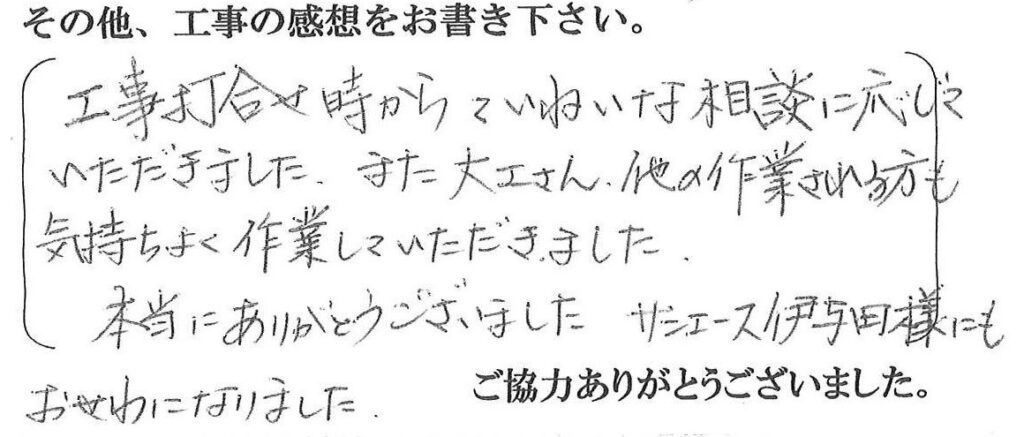 その他、工事の感想をお書き下さい。
工事打合せ時からていねいな相談に応じて
いただきました。また大工さん、他の作業される方も
気持ちよく作業していただきました。
本当にありがとうございました サンエース伊与田様にも
おせわになりました。
ご協力ありがとうございました。